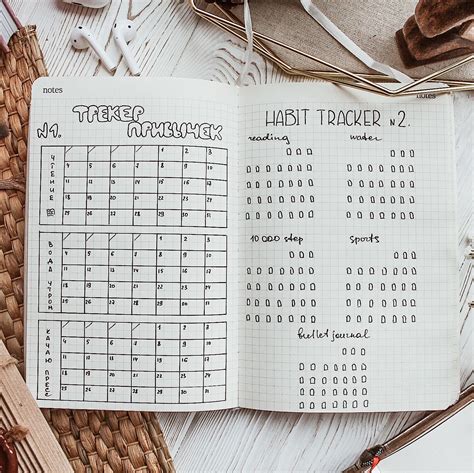 notes
№1. ТРЕКЕР
ПРИВЫЧЕК
ЧТЕНИЕ
1 2 3
4 5 6 7 8 9 10
11 12 13 14 15 16 17
18 19 20 21 22 23 24
25 26 27 28 29 30 31
ВОДА УТРОМ
1 2 3
4 5 6 7 8 9 10
11 12 13 14 15 16 17
18 19 20 21 22 23 24
25 26 27 28 29 30 31
КАЧАЮ ПРЕСС
1 2 3
4 5 6 7 8 9 10
11 12 13 14 15 16 17
18 19 20 21 22 23 24
25 26 27 28 29 30 31
notes
HABIT TRACKER №2.
reading water
10 000 step sports
bullet journal